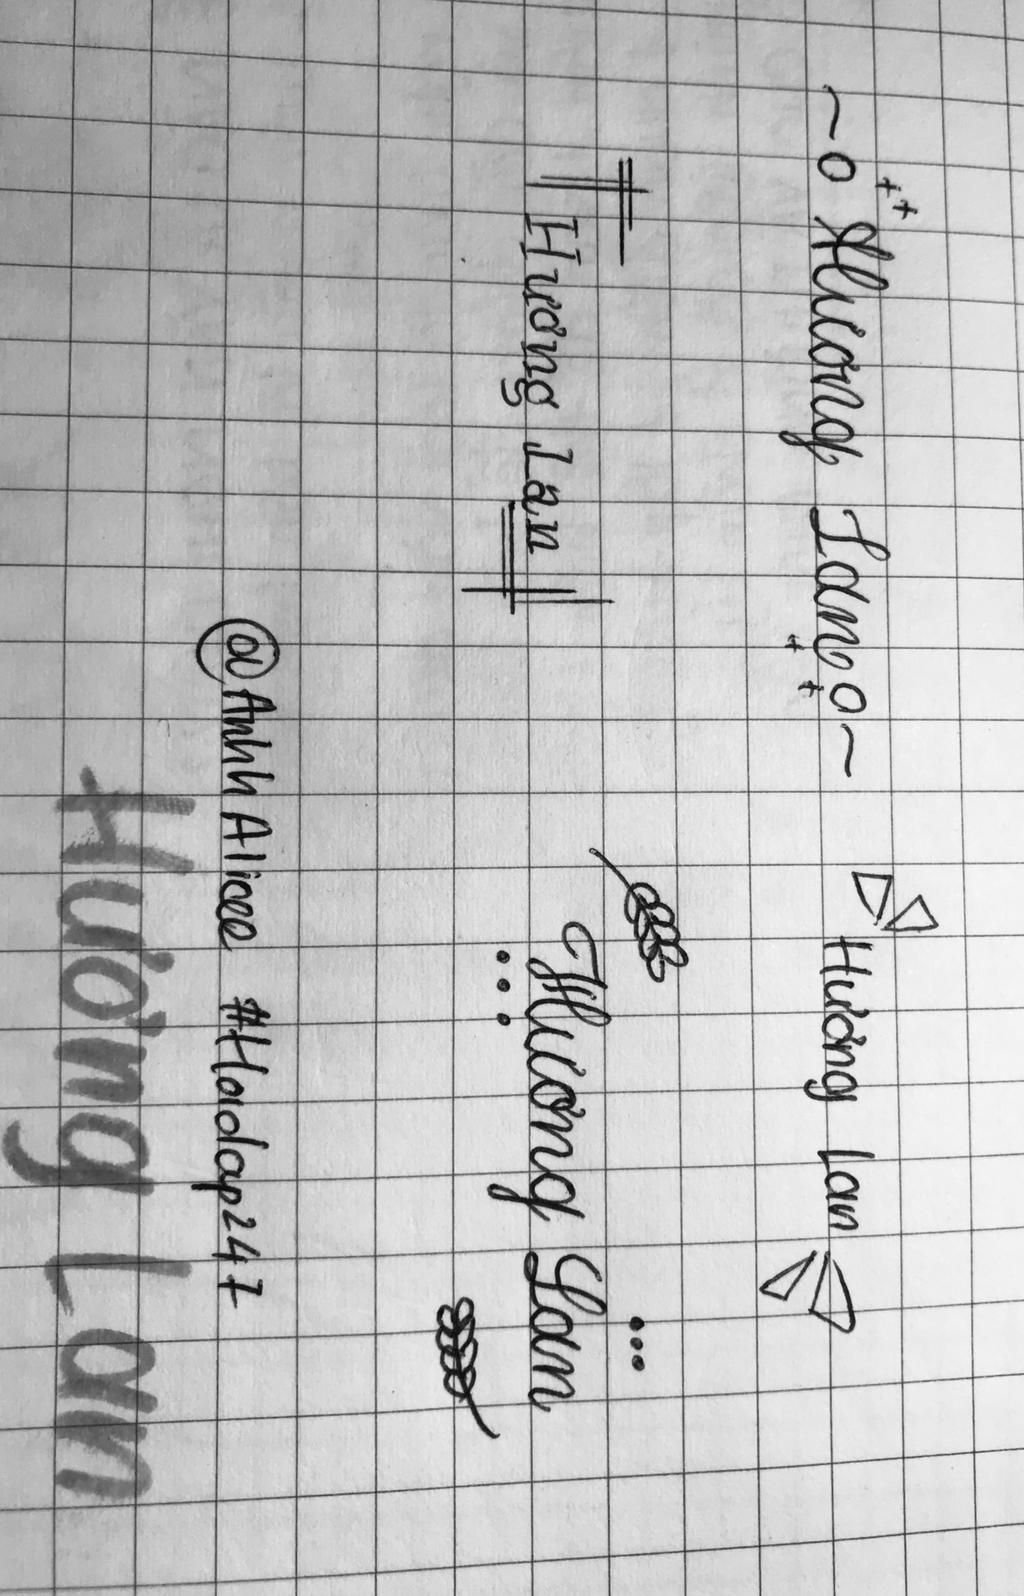 Hương Lan
Hương Lan
Hương Lan
Hương Lan
@AnhhAlicee #Hoidap247
Hương Lan